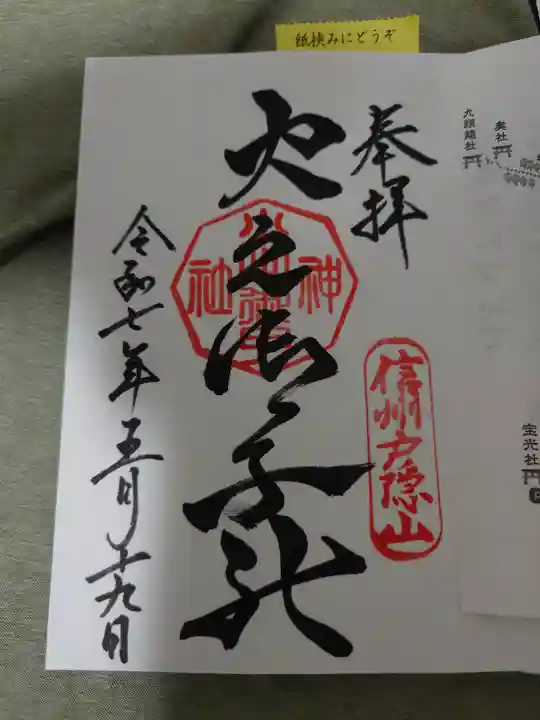 紙挟みにどうぞ
奉拝
火之御子社
信州戸隠山
神社
令和七年五月十九日
九頭龍社
奥社
宝光社
P